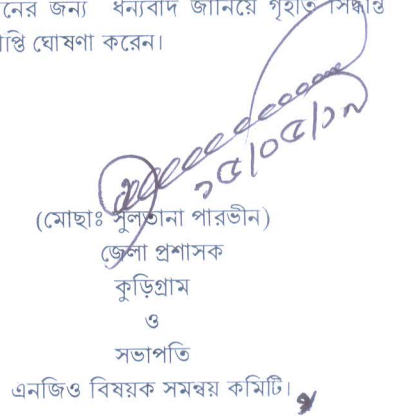 নের জন্য ধন্যবাদ জানিয়ে গৃহীত সিদ্ধান্ত
প্তি ঘোষণা করেন।
১৫/০৫/১৯
(মোছাঃ সুলতানা পারভীন)
জেলা প্রশাসক
কুড়িগ্রাম
ও
সভাপতি
এনজিও বিষয়ক সমন্বয় কমিটি।